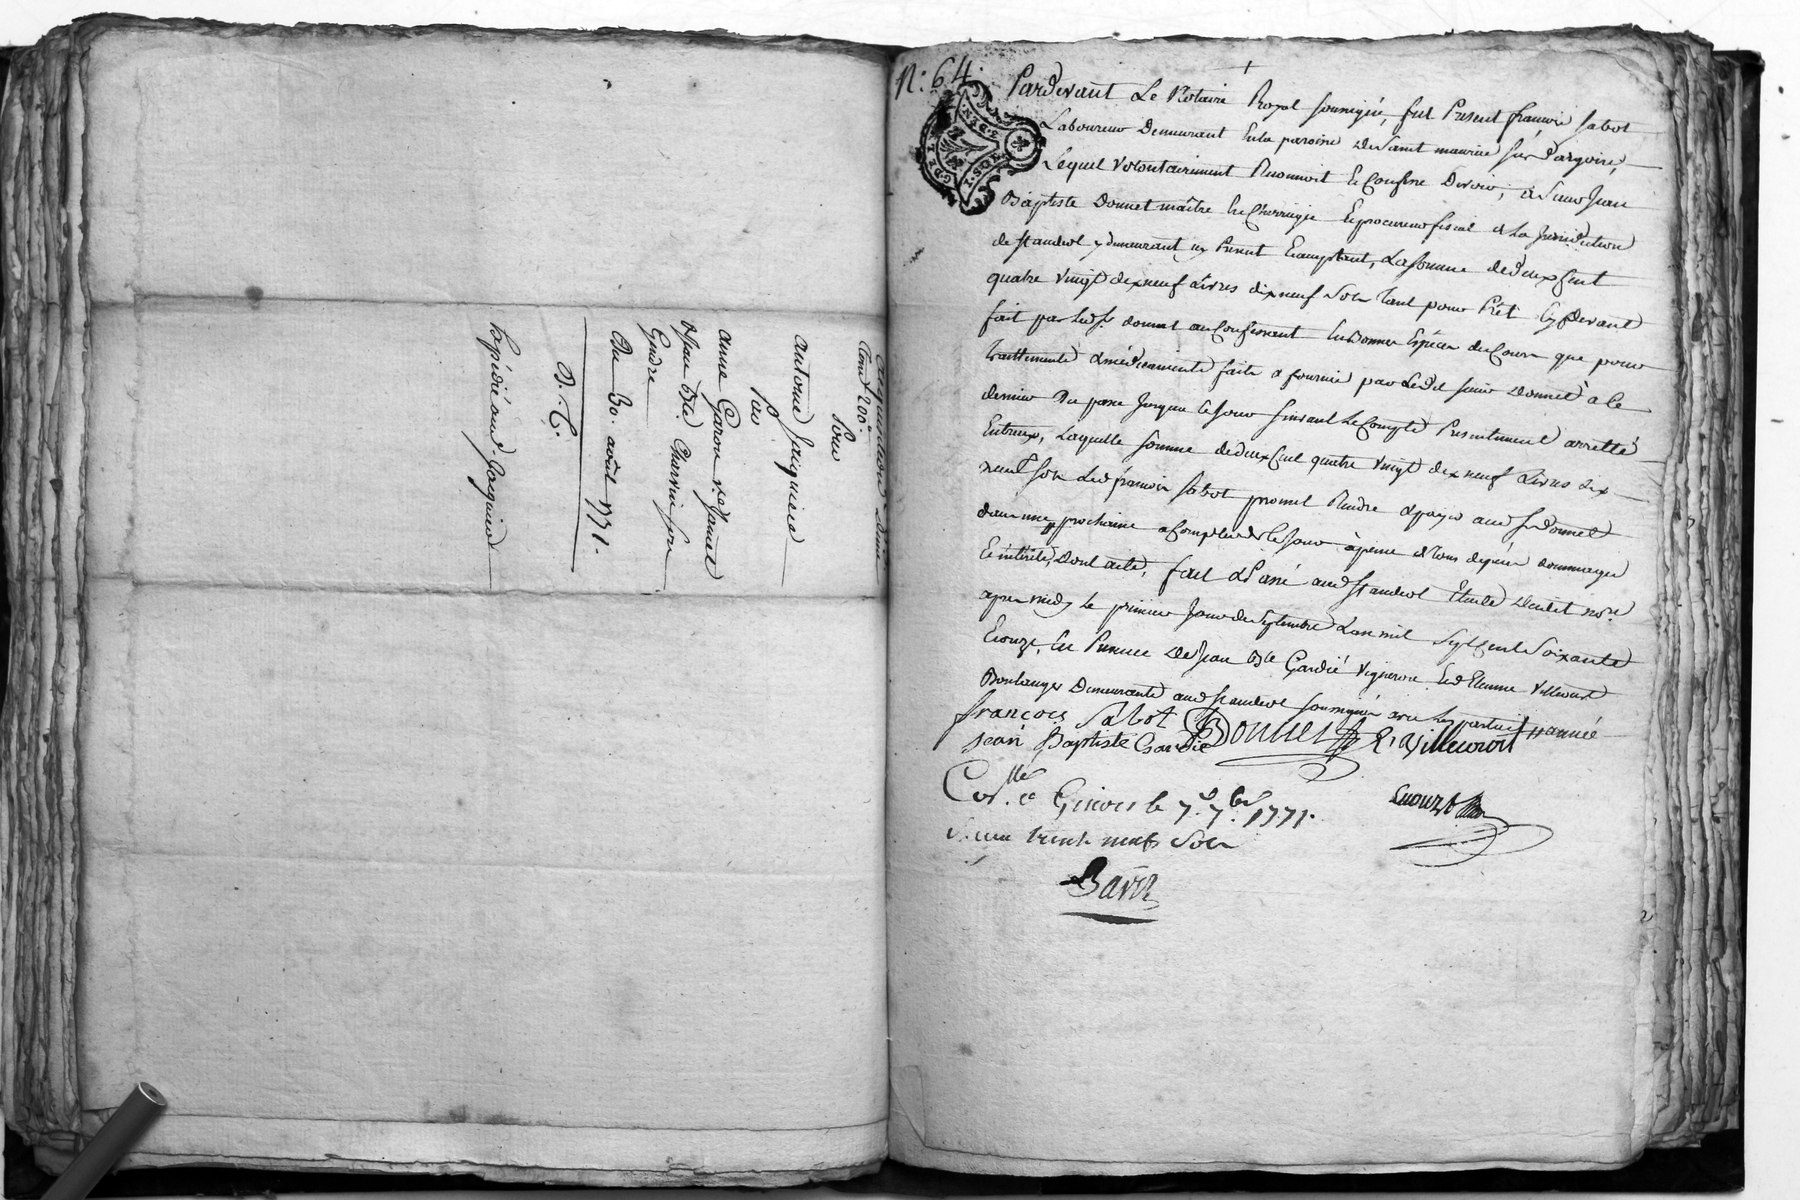 acquisition dune
Pour
antoine jacquier
Par
anne Garon ve. Jamet
et Jean Bte. Charvin son
Gendre
Du 30. août 1771.
B. C.
Expédié aud. Jacquier
N.o 64.
Pardevant Le Notaire Royal soussigné, fut Present françois sabot
Laboureur Demeurant En la paroisse de Saint maurice sur dargoire,
Lequel volontairement Reconnoit Et Confesse Devoir, à Sieur Jean
Baptiste Donnet maître En Chirurgie Et procureur fiscal de La Jurisdiction
de st andeol y demeurant icy Present Et acceptant, La somme de deux Cent
quatre vingt dix neuf Livres dix neuf Sols tant pour Prêt Cy devant
fait par Led. sr. donnet au Confessant En Bonnes Espèces de Cours que pour
traittements & médicaments faits & fournis par Led. sieur Donnet à ce
dernier Du passé Jusqua ce jour suivant Le Compte Presentement arretté
Entreux, Laquelle somme de deux Cent quatre vingt dix neuf Livres dix
neuf sols Led. françois sabot promet Rendre & payer aud. sr. Donnet
dans une // prochaine a Compter de ce jour à peine de tous depens dommages
Et intérêts, Dont acte, fait & Passé aud. st andeol Etude dudit nore.
apres midy Le premier Jour de Septembre Lan mil Sept Cent Soixante
Et onze, En Presence de Jean Bte Gardié vigneron Et d'Etienne Villecourt
Boulanger Demeurants aud. st andeol soussignés avec Les parties // année
françois Sabot Donnet E. Villecourt
Jean Baptiste Gardié
Conllé. a Givors le 7.e 7.bre 1771.
trente neuf Sols